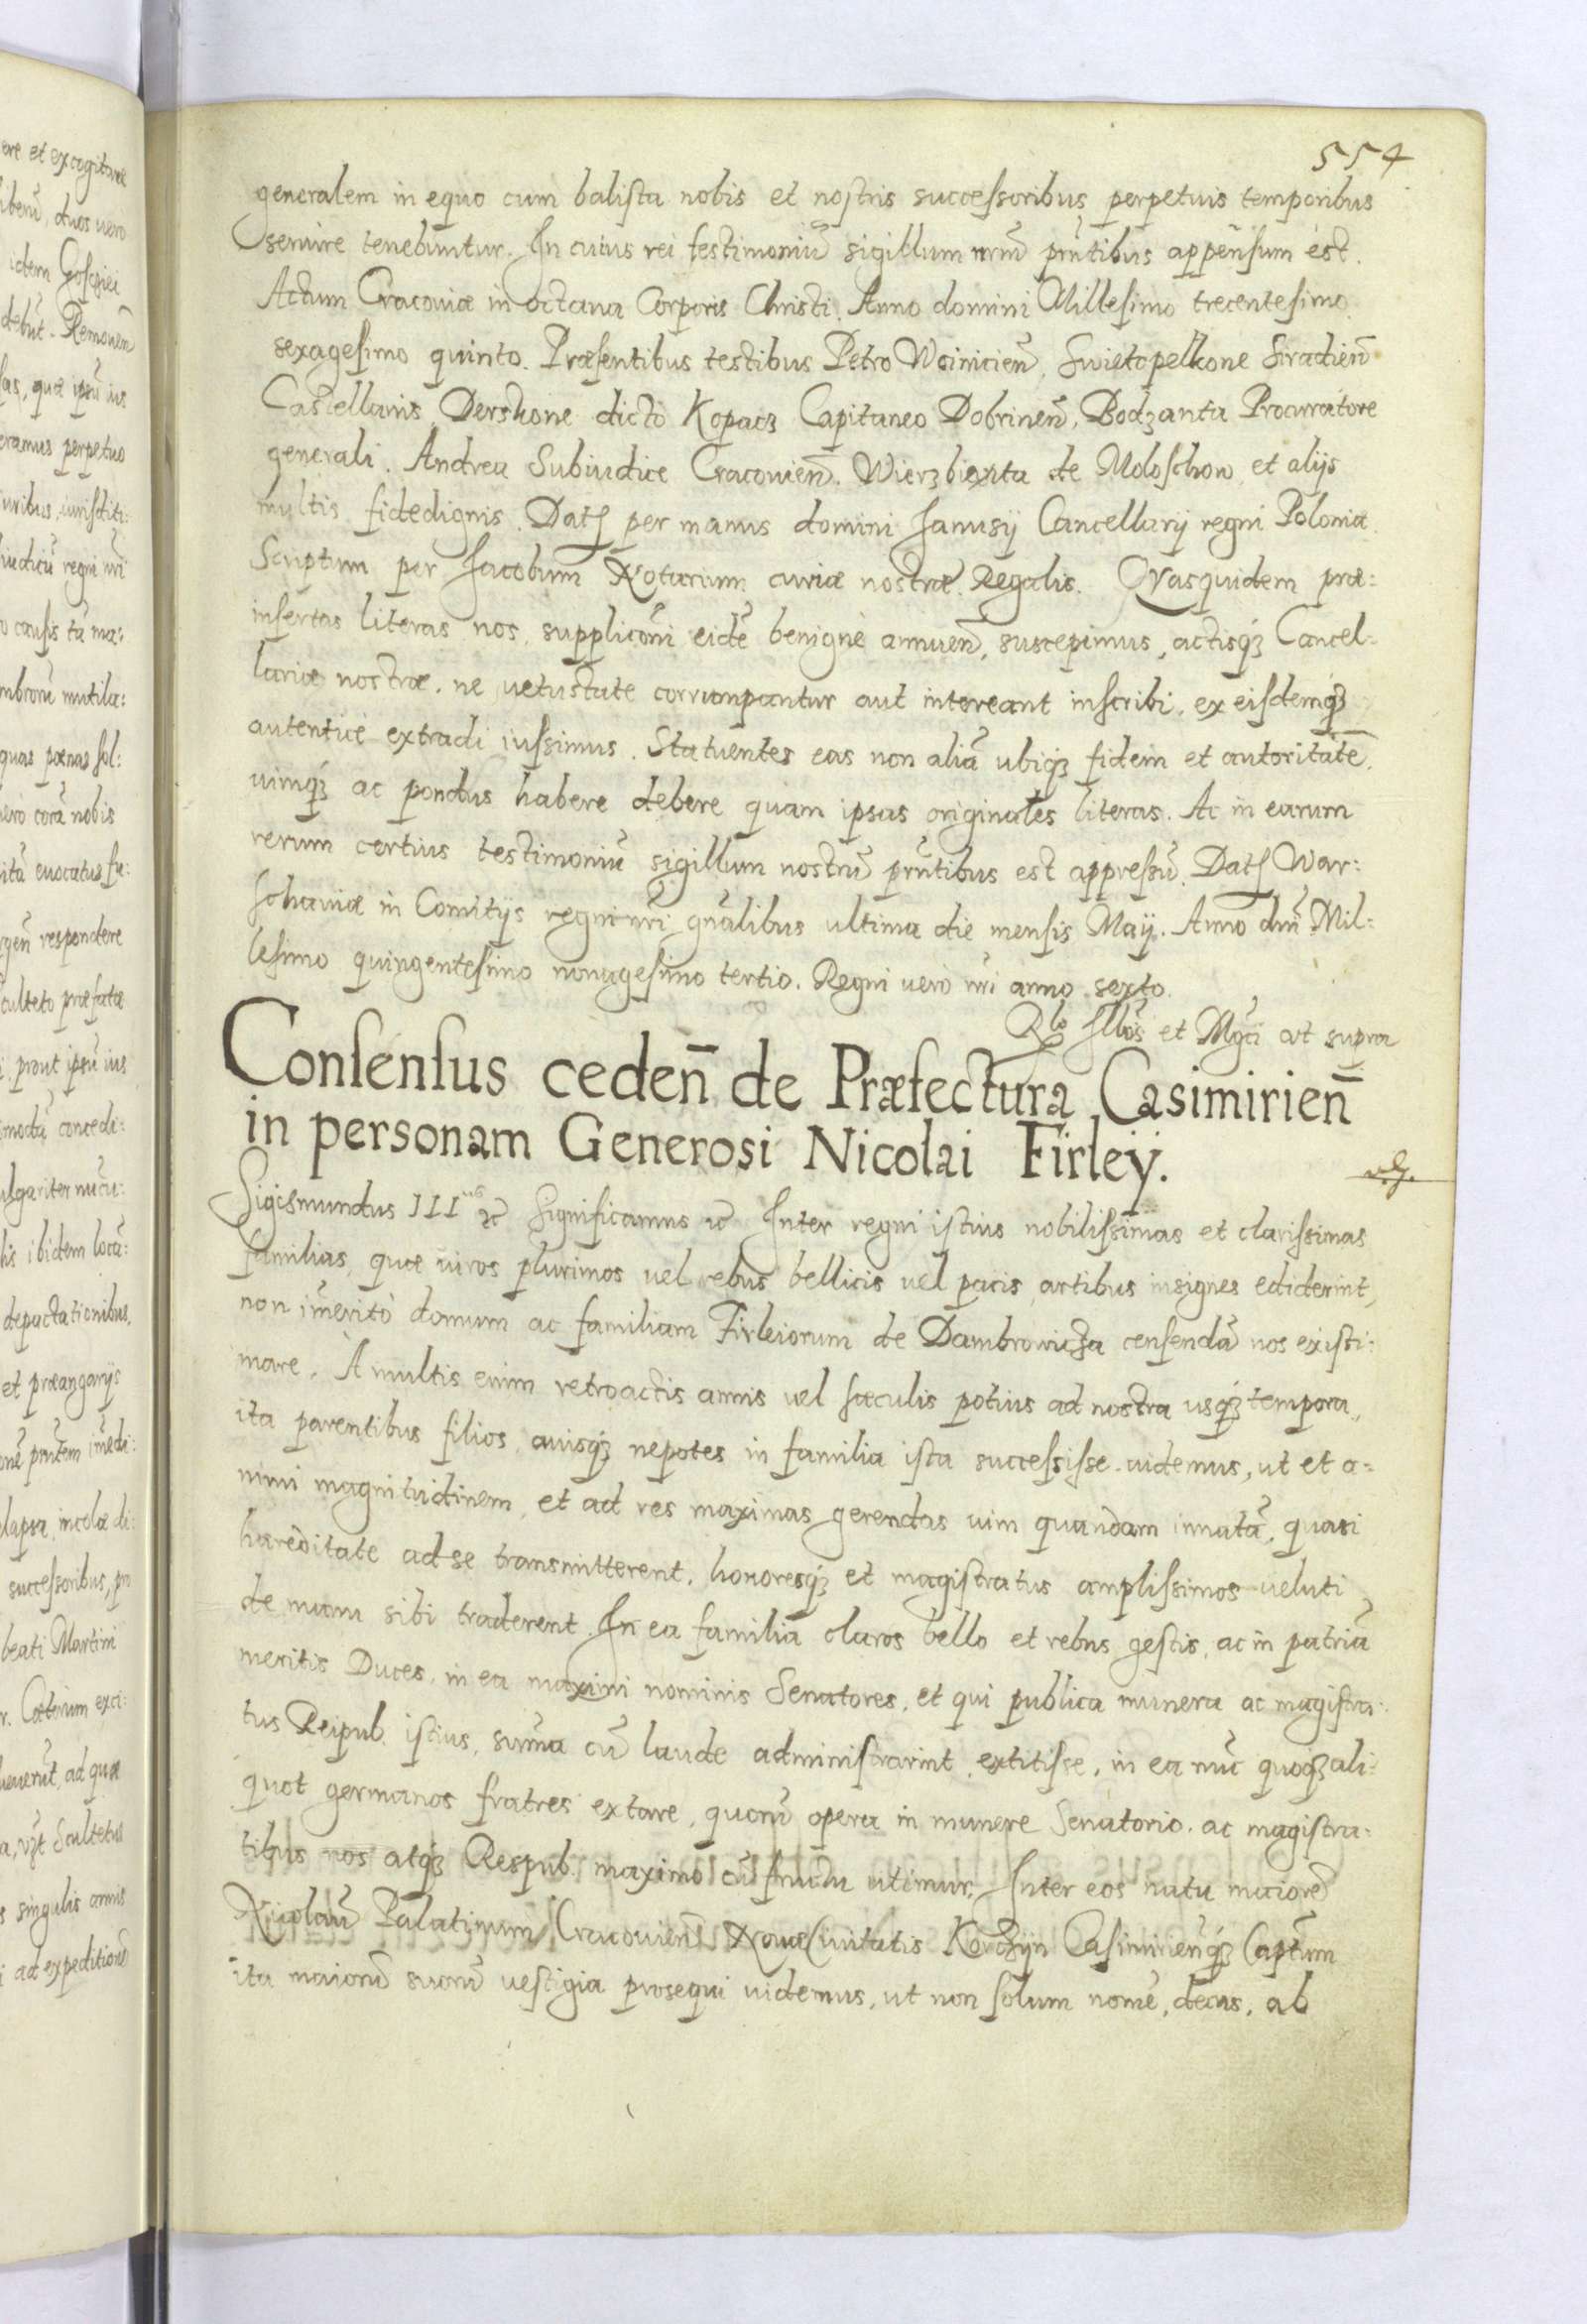 554
generalem in equo cum balista nobis et nostris successoribus perpetuis temporibus
seruire tenebuntur. In cuius rei testimoniũ sigillum nrm̃ prñtibus appensum est.
Actum Cracouiæ in octaua Corporis Christi. Anno domini Millesimo trecentesimo
sexagesimo quinto. Præsentibus testibus Petro Woinicień, Swietopelkone Siradień
Castellanis, Derskone dicto Kopacz Capitaneo Dobrineñ, Bodzanta Procuratore
generali. Andrea Subiudice Cracouieñ. Wierzbienta de Moloschow et alijs
multis fidedignis. Dat̃ per manus domini Janusij Cancellarij regni Poloniæ.
Scriptum per Jacobum Notarium curiæ nostræ Regalis. Quasquidem præ:
insertas literas nos supplicõni eidẽ benignè annueñ, suscepimus, actisq́ʒ Cancel:
lariæ nostræ, ne uetustate corrumpantur aut intereant inscribi, ex eisdemq́ʒ
autenticè extradi iussimus. Statuentes eas non aliã ubiq́ʒ fidem et autoritatẽ,
uimq́ʒ ac pondus habere debere quam ipsas originales literas. Ac in earum
rerum certius testimoniũ sigillum nostrũ prñtibus est appressũ. Dat̃ War:
schauiæ in Comitijs regni nrĩ gñalibus ultima die mensis Maij. Anno dnĩ Mil:
lesimo quingentesimo nonagesimo tertio. Regni uerò nrĩ anno sexto.
Rlo Illũs et Mgci ut supra
Consensus cedeñ de Præfectura Casimirieñ
in personam Generosi Nicolai Firleÿ.
Sigismundus IIIus etc̃ Significamus etc̃ Inter regni istius nobilissimas et clarissimas
familias, quæ uiros plurimos uel rebus bellicis uel pacis artibus insignes ediderint,
non im̃eritò domum ac familiam Firleiorum de Dambrowicza censendã nos existi:
mare. A multis enim retroactis annis uel sæculis potius ad nostra usq́ʒ tempora,
ita parentibus filios, auisq́ʒ nepotes in familia ista successisse uidemus, ut et a:
nimi magnitudinem, et ad res maximas gerendas uim quandam innatã, quasi
hæreditate ad se transmitterent, honoresq́ʒ et magistratus amplissimos ueluti
de manu sibi traderent. In ea familia claros bello et rebus gestis, ac in patriã
meritis Duces, in ea maximi nominis Senatores, et qui publica munera ac magistra:
tus Reipub. istius, sum̃a cũ laude administrarint, extitisse, in ea nũc quoq́ʒ ali:
quot germanos fratres extare, quorũ opera in munere Senatorio, ac magistra:
tibus nos atq́ʒ Respub. maximo cũ fructu utimur. Inter eos natu maiorẽ
Nicolaũ Palatinum Cracouieñ Nouæ Ciuitatis Korczÿn Casimirieñq́ʒ Captm̃
ita maiorũ suorũ uestigia prosequi uidemus, ut non solum nomẽ, decus, ab